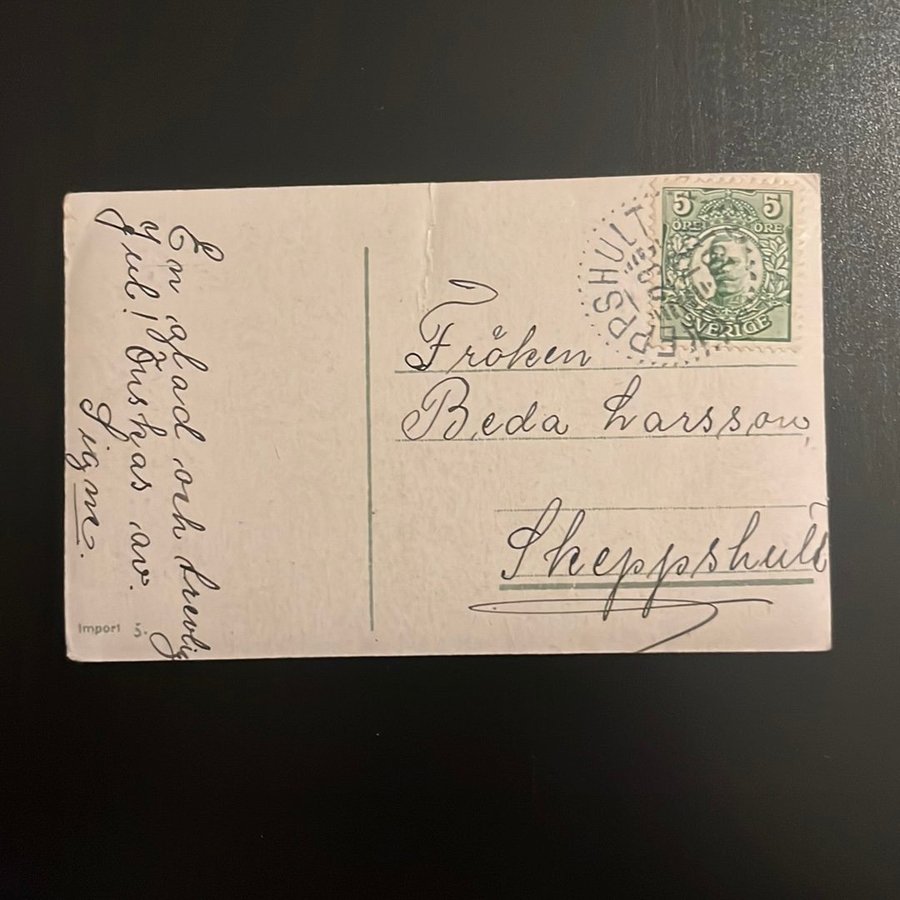 En glad och trevlig
Jul! Önskas av.
Signe.
Import 5.
5 5
ÖRE ÖRE
SVERIGE
SKEPPSHULT
Fröken
Beda Larsson,
Skeppshult